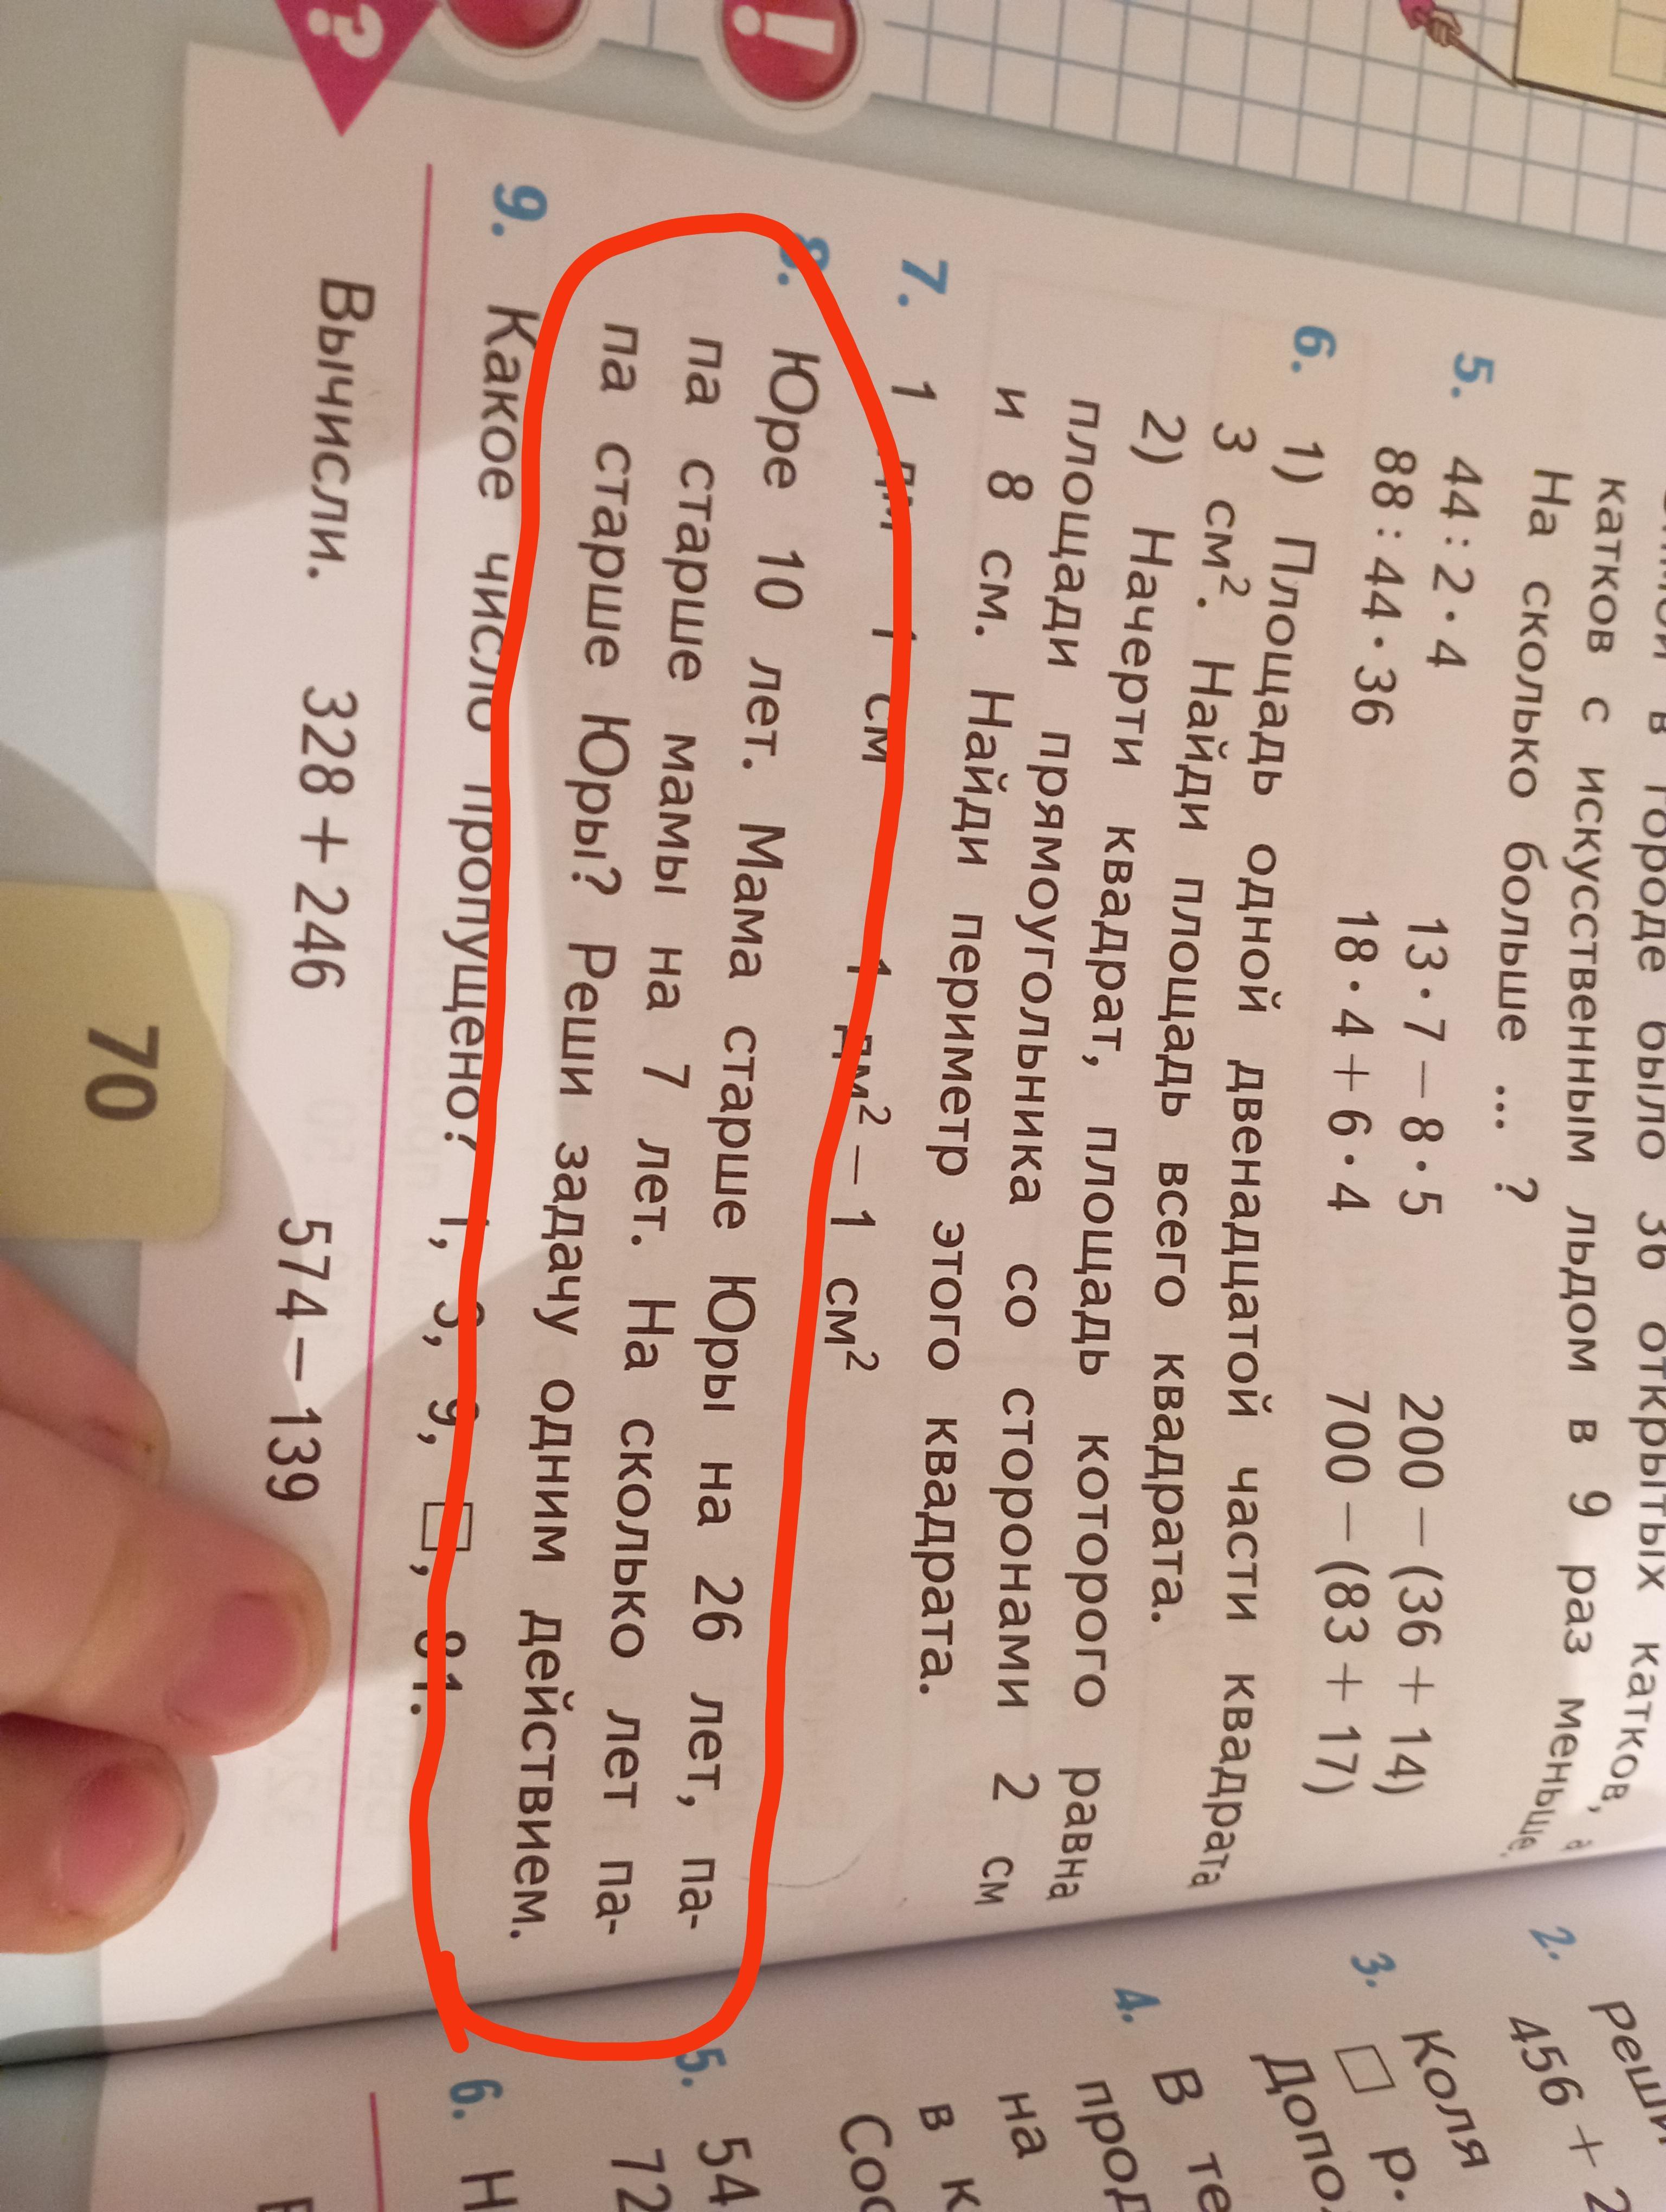 катков с искусственным льдом в 9 раз меньше.
На сколько больше ... ?
5. 44 : 2 · 4 13 · 7 − 8 · 5 200 − (36 + 14)
88 : 44 · 36 18 · 4 + 6 · 4 700 − (83 + 17)
6. 1) Площадь одной двенадцатой части квадрата
3 см². Найди площадь всего квадрата.
2) Начерти квадрат, площадь которого равна
площади прямоугольника со сторонами 2 см
и 8 см. Найди периметр этого квадрата.
7. 1 дм 1 см 1 дм² − 1 см²
8. Юре 10 лет. Мама старше Юры на 26 лет, па-
па старше мамы на 7 лет. На сколько лет па-
па старше Юры? Реши задачу одним действием.
9. Какое число пропущено? 1, 3, 9, □, 81.
Вычисли. 328 + 246 574 − 139
70
?
!
2. Реши
456 + 2
3. Коля
□ р.
4. В те
на
в к
5. 54
72
6. Н